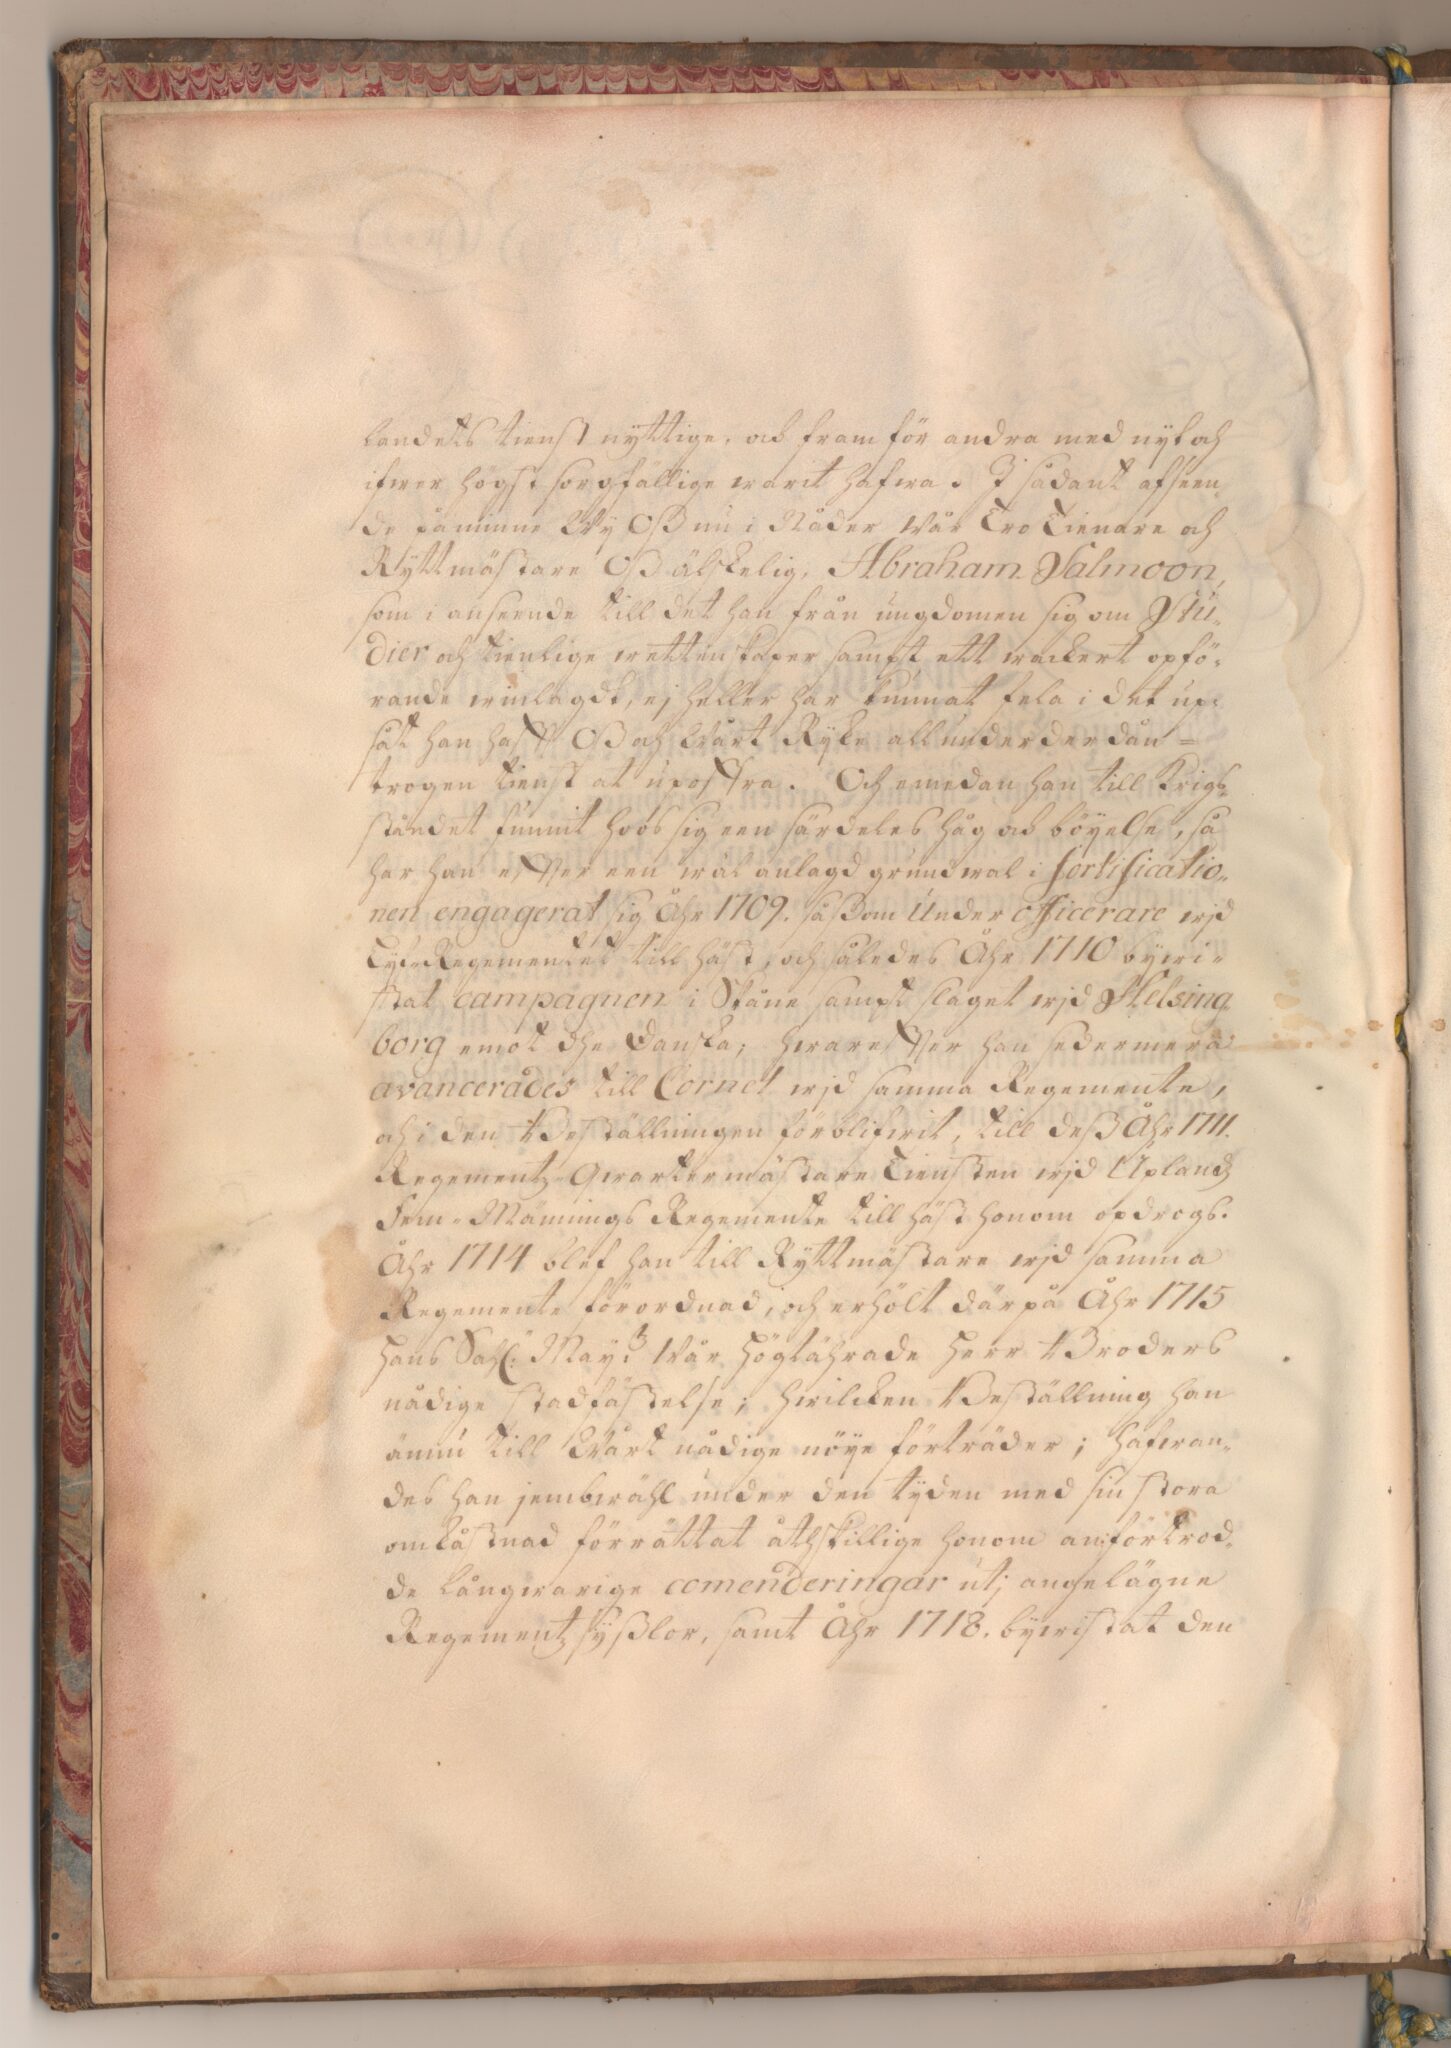 landets tienst nyttige, och framför andra med nyt och
ifwer högst sorgfällige warit hafwa. I sådant afseen-
de påminne Wy Oß nu i Nåder Wår Tro Tienare och
Ryttmästare Oß älskelig, Abraham Salmoon,
som i anseende till det han från ungdomen sig om Stu-
dier och tienlige wettenskaper sampt ett wackert opfö-
rande winlagdt, ej heller har kunnat fela i det up-
såt han haft Oß och Wårt Ryke all underdån-
trogen tienst at upoffra. Och emedan han till Krigs-
ståndet funnit hoos sig een särdeles håg och böyelse, så
har han effter een wäl anlagd grundwal i fortificatio-
nen engagerat sig Åhr 1709. såßom Under officerare wid
Lyf-Regementet till häst, och således Åhr 1710 bywi-
stat campagnen i Skåne sampt slaget wid Helsing
borg emot dhe Danska; hwareffter han sedermera
avancerades till Cornet wid samma Regemente,
och i den Beställningen förblifwit, till deß Åhr 1711.
Regementz Qwartermästare Tiensten wid Uplandz
Fem-Männings Regemente till häst honom opdrogs.
Åhr 1714 blef han till Ryttmästare wid samma
Regemente förordnad, och erhölt därpå Åhr 1715
Hans Sahl. May:tz Wår Högtährade Herr Broders
nådige stadfästelse; hwilcken Beställning han
ännu till Wårt nådige nöye förträder; hafwan-
des han jembwähl under den tyden med sin stora
omkåstnad förrättat åthskillige honom anförtrod-
de långwarige comenderingar uti angelägne
Regementz syßlor, samt Åhr 1718. bywistat den